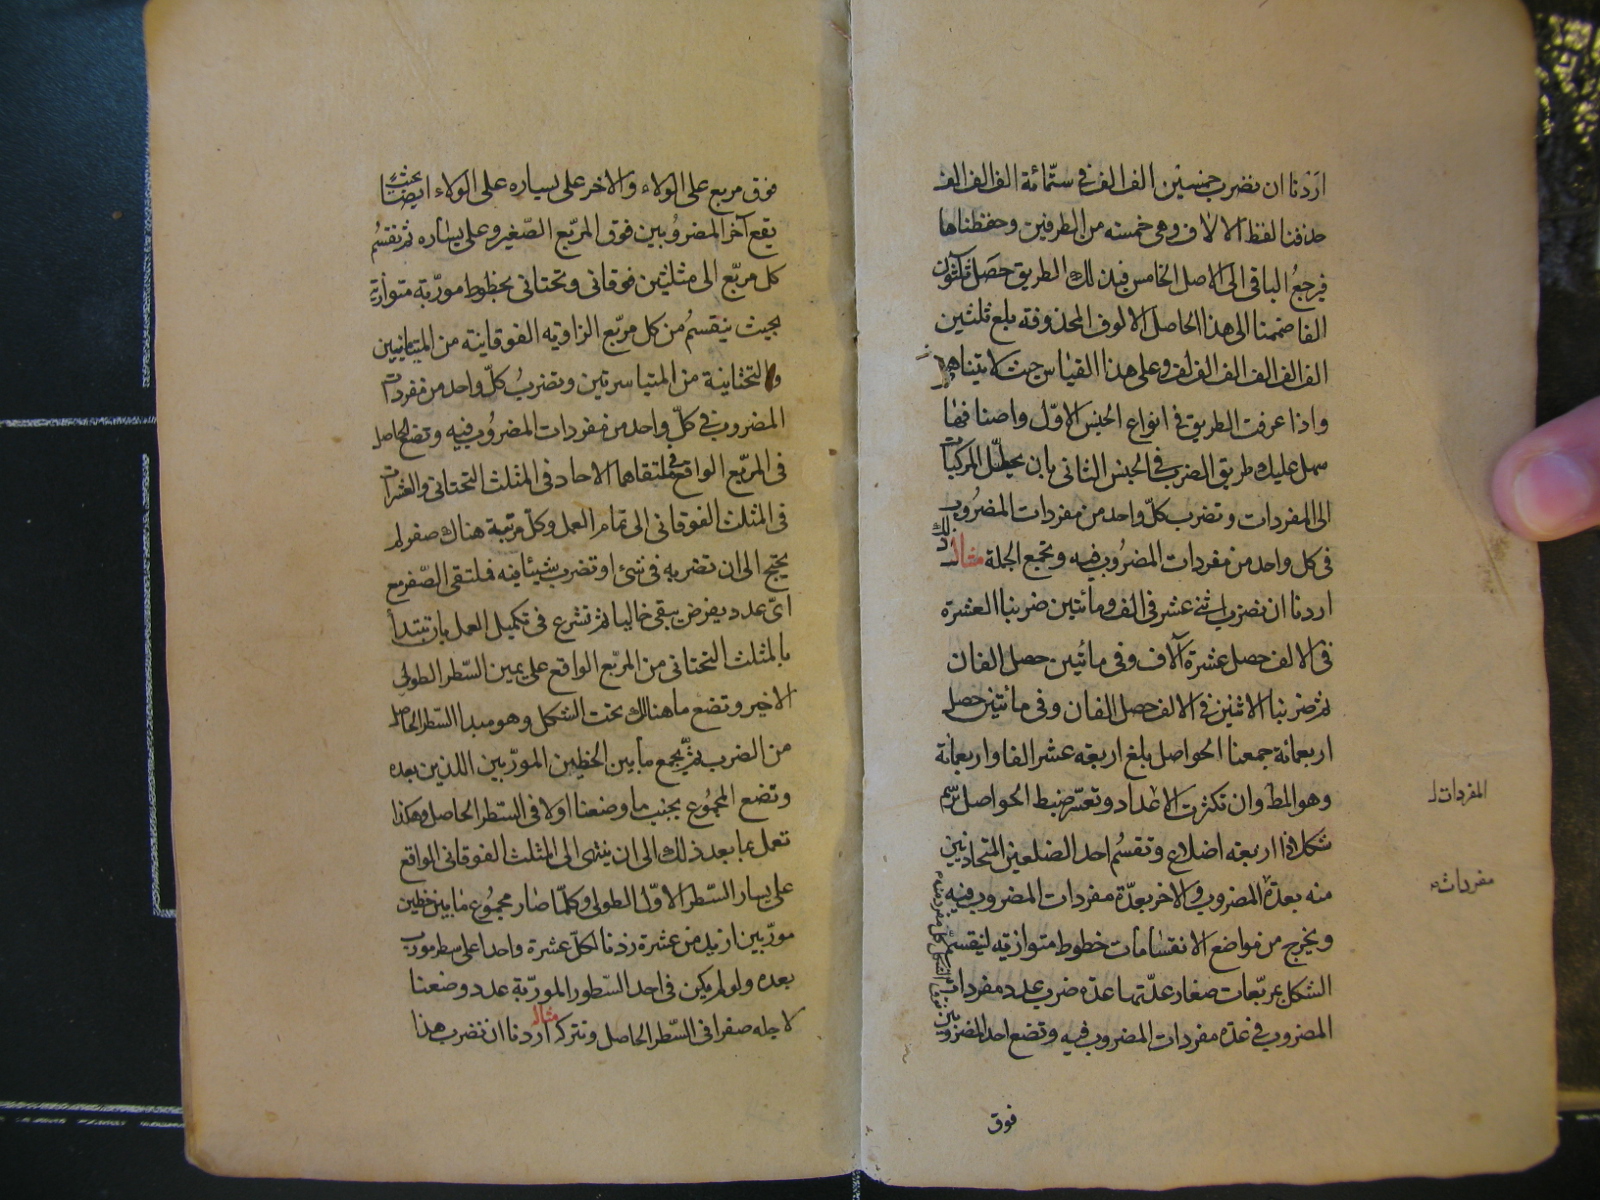 اردنا ان نضرب خمسين الف الف في ستمائة الف الف الف
حذفنا لفظ الالاف وهي خمسه من الطرفين وحفظناها
فيرجع الباقي الى الاصل الخامس فبذلك الطريق حصل ثلثون
الفا ضممنا الى هذا الحاصل الالوف المحذوفة بلغ ثلثين
الف الف الف الف الف الف وعلى هذا القياس حيث لا يتناهى
واذا عرفت الطريق في انواع الجنس الاول واصنافها
سهل عليك طريق الضرب في الجنس الثاني بان يحلل المركبات
الى المفردات وتضرب كل واحد من مفردات المضروب
في كل واحد من مفردات المضروب فيه وتجمع الجملة مثال ذلك
اردنا ان نضرب اثني عشر في الف ومائتين ضربنا العشرة
في الالف حصل عشرة آلاف وفي مائتين حصل الفان
ثم ضربنا الاثنين في الالف حصل الفان وفي مائتين حصل
اربعمائة جمعنا الحواصل بلغ اربعه عشر الفا واربعمائة
وهو المط وان تكثرت الاعداد وتعسر ضبط الحواصل نرسم
شكلا ذا اربعه اضلاع وتقسم احد الضلعين المتحاذيين
منه بعدة المضروب والاخر بعدة مفردات المضروب فيه
ويخرج من مواضع الانقسامات خطوط متوازية لينقسم
الشكل بمربعات صغار عدتها عدة ضرب عدد مفردات
المضروب في عدة مفردات المضروب فيه وتضع احد المضروبين
فوق الشكل كل مفرد منه
المفردات
مفردات
فوق
فوق مربع على الولاء والاخر على يساره على الولاء ايضا بحيث
يقع آخر المضروبين فوق المربع الصغير وعلى يساره ثم نقسم
كل مربع الى مثلثين فوقاني وتحتاني بخطوط موربة متوازية
بحيث ينقسم من كل مربع الزاويه الفوقانية من المتيامنتين
والتحتانية من المتياسرتين وتضرب كل واحد من مفردات
المضروب في كل واحد من مفردات المضروب فيه وتضع الحاصل
في المربع الواقع في ملتقاهما الاحاد في المثلث التحتاني والعشرات
في المثلث الفوقاني الى تمام العمل وكل مرتبة هناك صفر لم
يحتج الى ان تضربه في شئ او تضرب شيئا فيه فملتقى الصفر مع
اي عدد يفرض يبقى خاليا ثم نشرع في تكميل العمل بان تبتدأ
بالمثلث التحتاني من المربع الواقع على يمين السطر الطولي
الاخير وتضع ما هناك تحت الشكل وهو مبدا السطر الحاصل
من الضرب ثم تجمع ما بين الخطين الموربين اللذين بعده
وتضع المجموع بجنب ما وضعنا اولا في السطر الحاصل وهكذا
تعمل بما بعد ذلك الى ان ينتهى الى المثلث الفوقاني الواقع
على يسار السطر الاول الطولي وكلما صار مجموع ما بين خطين
موربين ازيد من عشرة زدنا لكل عشرة واحدا على سطر مورب
بعده ولو لم يكن في احد السطور الموربة عدد وضعنا
لاجله صفرا في السطر الحاصل ونتركه مثاله اردنا ان نضرب هذا